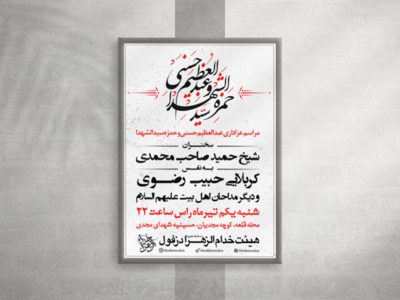 حمزه سیدالشهدا و عبدالعظیم حسنی
مراسم عزاداری عبدالعظیم حسنی و حمزه سیدالشهدا
سخنران
شیخ حمید صاحب محمدی
به نفس
کربلایی حبیب رضوی
و دیگر مداحان اهل بیت علیهم السلام
شنبه یکم تیر ماه راس ساعت ۲۲
محله قلعه، کوچه مجدیان، حسینیه شهدای مجدی
هیئت خدام الزهرا دزفول